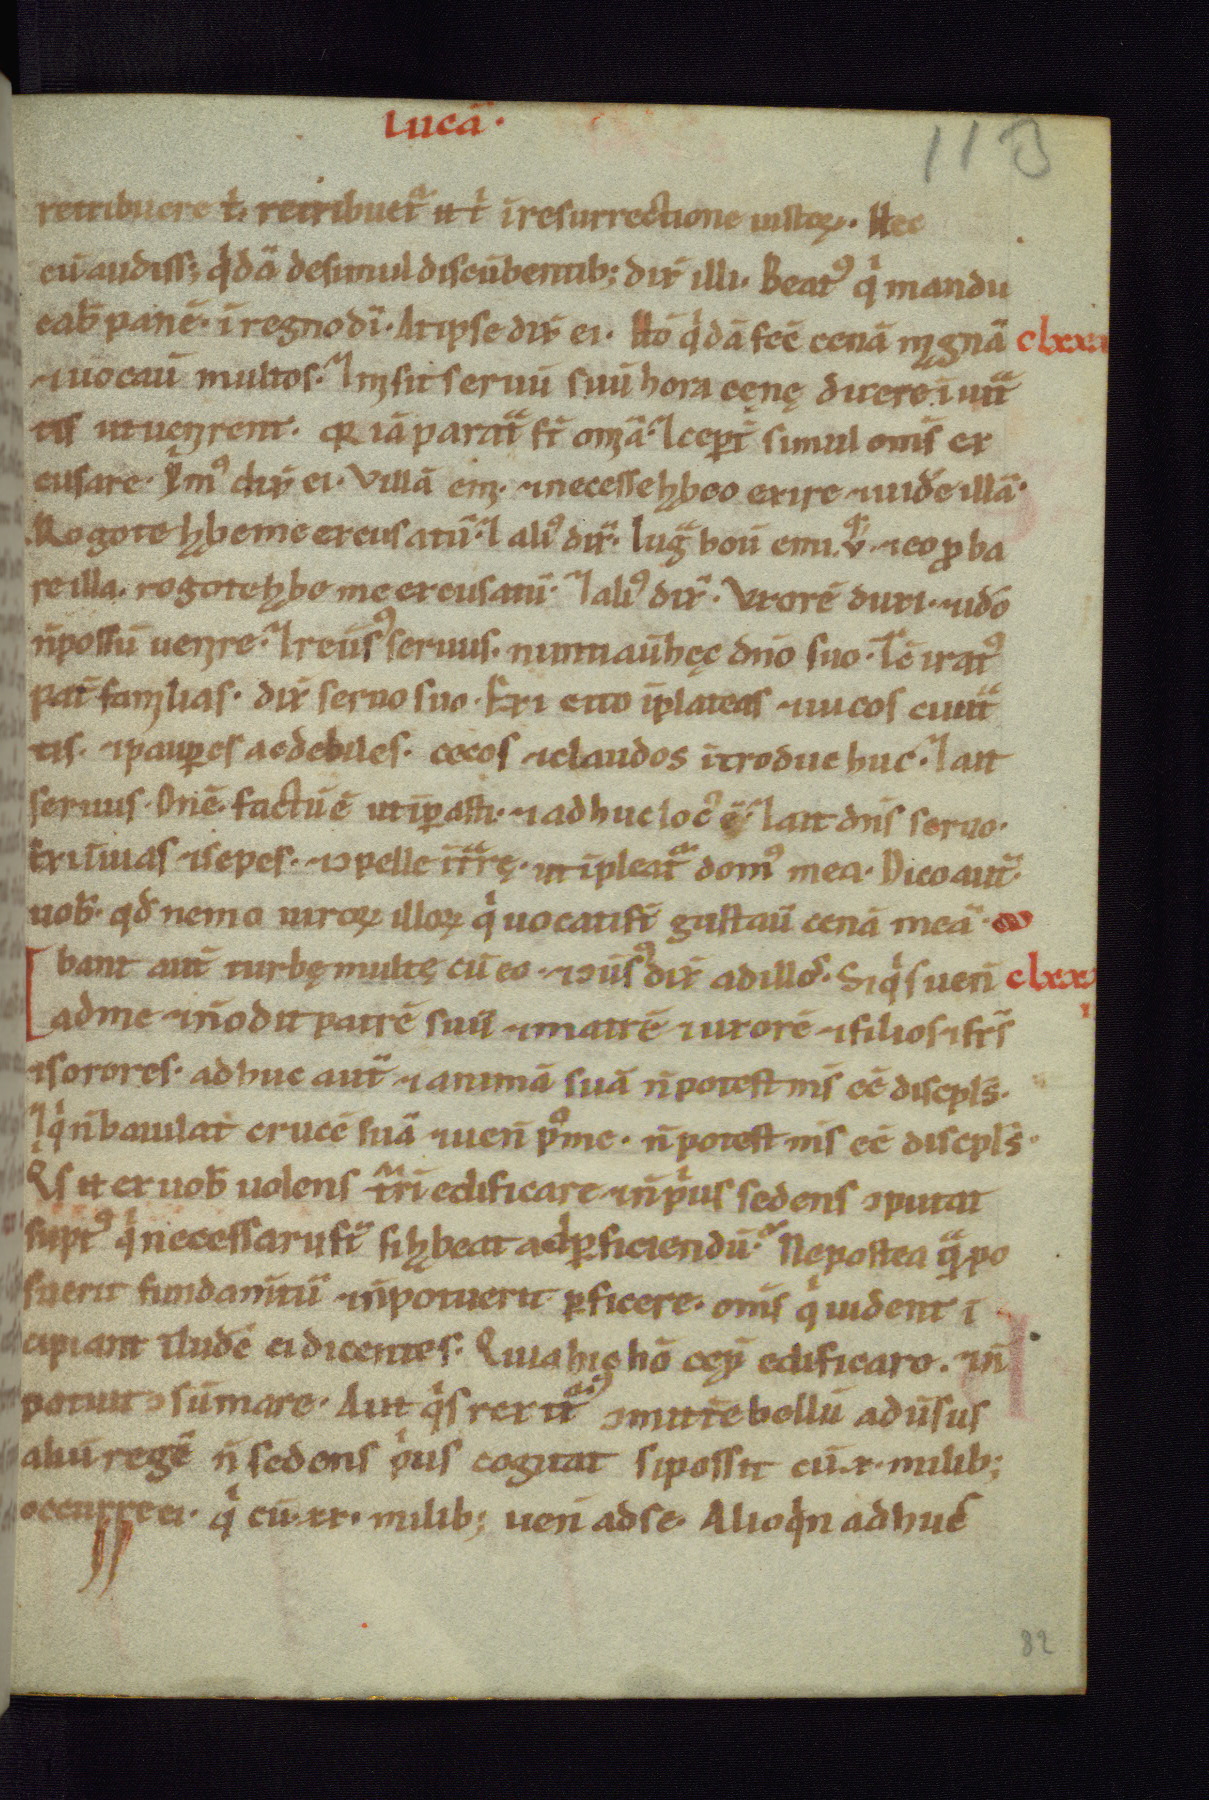 lucā·
113
retribuere t̄· retribuet᷑ it t̄ īresurrectione iustoꝝ· Hec
cū audiss; qͥdā desimul discūbentib; dix̄ illi· Beatꝰ qͥ mandu
cab̄ panē· īregno dī· Atipse dix̄ ei· Hō qͥdā fec̄ cenā mgnā clxxx
⁊uocau̅ multos· ⁊ misit seruū suū hora cęnę dicere īuita
tis ut uenirent· qꝛ iā parata st̄ om̄ia· ⁊ ceper̄t simul om̄s ex
cusare· Pͥmꝰ dix̄ ei· Villā emi· ⁊necesse hbeo exire ⁊uidē illā·
Rogo te hbe me excusatū· ⁊ aliꝰ dix̄· Iuga boū emi· v· ⁊eo ꝓba
re illa· rogo te hbe me excusatū· ⁊ aliꝰ dix̄· Vxorē duxi· ⁊idō
n̄ possū uenire· ⁊ reūsꝰ seruus· nuntiau̅ hęc dn̄o suo· Tc̄ iratꝰ
pat̄ familias· dix̄ seruo suo· Exi cito īplateas ⁊uicos ciuita
tis· ⁊pauꝑes ac debiles· cecos ⁊claudos ītroduc huc· ⁊ ait
seruus· Dn̄e· factū ē ut īꝑasti· ⁊adhuc locꝰ ē· ⁊ ait dn̄s seruo·
Exi ī uias ⁊sepes· ⁊ↄpelle īt̄rę· ut īpleat᷑ domꝰ mea· Dico aut̄
uob̄· qd̄ nemo uiroꝝ illoꝝ qͥ uocati st̄ gustau̅ cenā meā·
Ibant aut̄ turbę multę cū eo· ⁊ↄūsꝰ dix̄ ad illos· Siqͥs uen̄ clxxx
ad me ⁊n̄ odit patrē suū ⁊matrē ⁊uxorē ⁊filios ⁊fr̄s i
⁊sorores· adhuc aut̄ ⁊animā suā n̄ potest m̄s ēē discpl̄s·
⁊ qͥ n̄ baiulat crucē suā ⁊uen̄ pꝰ me· n̄ potest m̄s ēē discpl̄s·
Qͥs it ex uob̄ uolens t̄rī edificare ⁊n̄ pͥus sedens ↄputat
supt̄ꝰ qͥ necessarii st̄ si hbeat ad ꝑficiendū· Ne postea qͣ po
suerit fundam̄tū ⁊n̄ potuerit ꝑficere· om̄s qͥ uident ī
cipiant īludē ei dicentes· Quia hic hō cep̄ edificare· ⁊n̄
potuit ↄsūmare· Aut qͥs rex it᷑ᷓꝰ ↄmittē bellū aduͥsus
aliū regē n̄ sedens pͥus cogitat si possit cū ·x· milib;
occurrē ei· qͥ cū ·xx· milib; uen̄ ad se· Alioqͥn adhuc
82